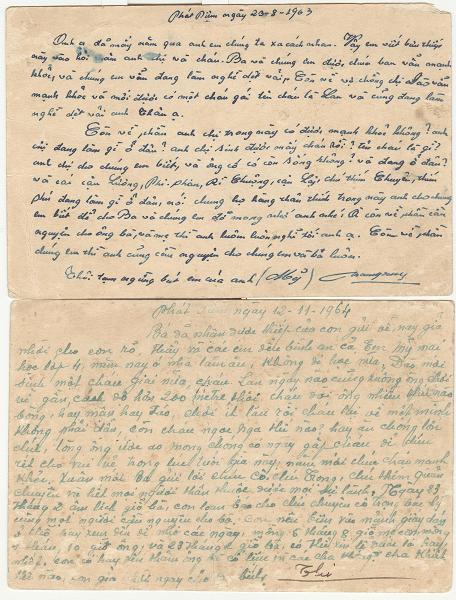 Phát Diệm ngày 20-8-1963
Anh ạ đã mấy năm qua anh em chúng ta xa cách nhau. Vậy em viết bưu thiếp
này vào hỏi thăm anh chị và cháu. Ba và chúng em được chúc ban vẫn mạnh
khỏe, và chúng em vẫn đang làm nghề dệt vải. Còn về vợ chồng chị Đào vẫn
mạnh khỏe và mới được có một cháu gái tên cháu là Lan và cũng đang làm
nghề dệt vải anh Thân ạ.
Còn về phần anh chị trong này có được mạnh khỏe không? anh
chị đang làm gì ở đâu? anh chị sinh được mấy cháu rồi? tên cháu là gì?
anh chị cho chúng em biết, và ông cố có còn sống không? và đang ở đâu?
và cai cậu Lương, Phi, phán, Kí Chưởng, cậu chú thím Thuyên, thím
phú đang làm gì ở đâu, nói chung họ hàng thân thích trong này anh cho chúng
em biết để cho Ba và chúng em đỡ mong nhớ anh nhé! À còn về phần cầu
nguyện cho ông bà, và mẹ thì anh luôn luôn nghĩ tới anh ạ. Còn về phần
chúng em thì anh cũng cầu nguyện cho chúng em và ba luôn.
Thôi tạm ngừng bút em của anh (Mỹ)
Phát Diệm ngày 12-11-1964
Ba đã nhận được thiếp của con gửi về, nay gia
nhời cho con rõ, Thầy và các em đều bình an cả Em Mỹ mai
học lớp 4, năm nay ở nhà làm ăn, không đi học nữa, Đào mới
sinh một cháu giai nữa, cháu Lan ngày nào cũng không ông
về gần, cách độ hơn 200 mètre thôi, cháu với ông nhiều
bông, hay mây hay Fio, chơi ít lâu rồi cháu thì về một mình
không phải dẫn, còn cháu ngọc Nga thế nào, hay ăn chóng lớn
chứ, lòng ông ước ao mong chóng có ngày gặp cháu đi dìu
rét cho vui vẻ trong lúc tuổi già này, năm mới chúc cháu mạnh
khỏe. Xuân mới Ba gửi lời chúc cô, chú Trong, chú thím quản
Chuyên và hết mọi người thân thuộc được mọi sự lành. Ngày 23
tháng 2 âm lịch giỗ bà, con loan báo cho chú Chuyên cô Trọn, bác lý
cùng mọi người cầu nguyện cho bà. Con nếu cần mua mảnh giấy dán
ở chỗ hay xem đến để nhớ các ngày, mồng 6 tháng 8 giỗ mẹ con, mồng
4 tháng 10 giỗ ông, và 23 tháng 2 giỗ bà, có thể xin lễ nước là hay
nhất, con có hay đến thăm ông Kế cố Liêu và các cha không? cha Khiết
thế nào, con giả nhời ngay cho Ba biết,
Thi